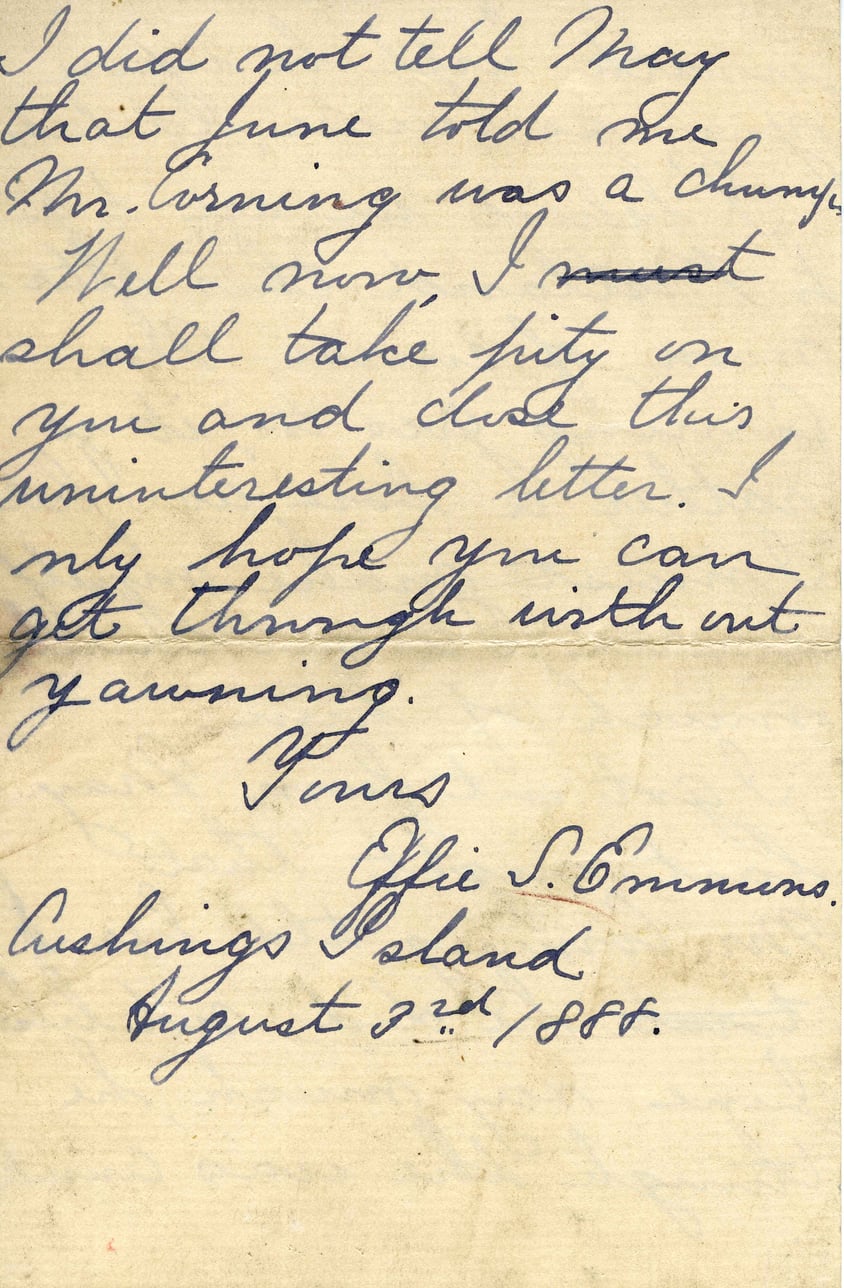 I did not tell May
that June told me
Mr. Corning was a chump.
Well now, I must
shall take pity on
you and close this
uninteresting letter. I
nly hope you can
get through with out
yawning.
Yours
Effie S. Emmons.
Cushings Island
August 3rd 1888.